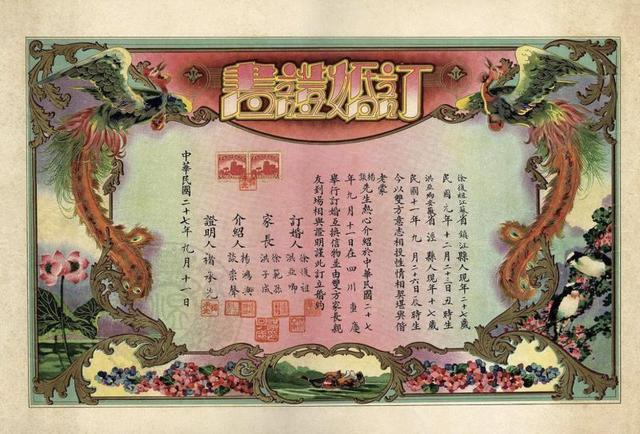 訂婚證書
徐復祖江蘇省鎮江縣人現年二十七歲
民國元年十二月二十三日丑時生
洪亞卿安徽省涇縣人現年十七歲
民國十一年九月二十六日辰時生
今以雙方意志相投性情相契堪與偕
老蒙楊談先生熱心介紹於中華民國二十七
年九月十一日在四川重慶
舉行訂婚互換信物並由雙方家長親
友到場相與證明謹此訂立婚約
訂婚人 徐復祖
洪亞卿
家長 徐
洪子成
介紹人 楊鴻
談榮聲
證明人 承先
中華民國二十七年九月十一日